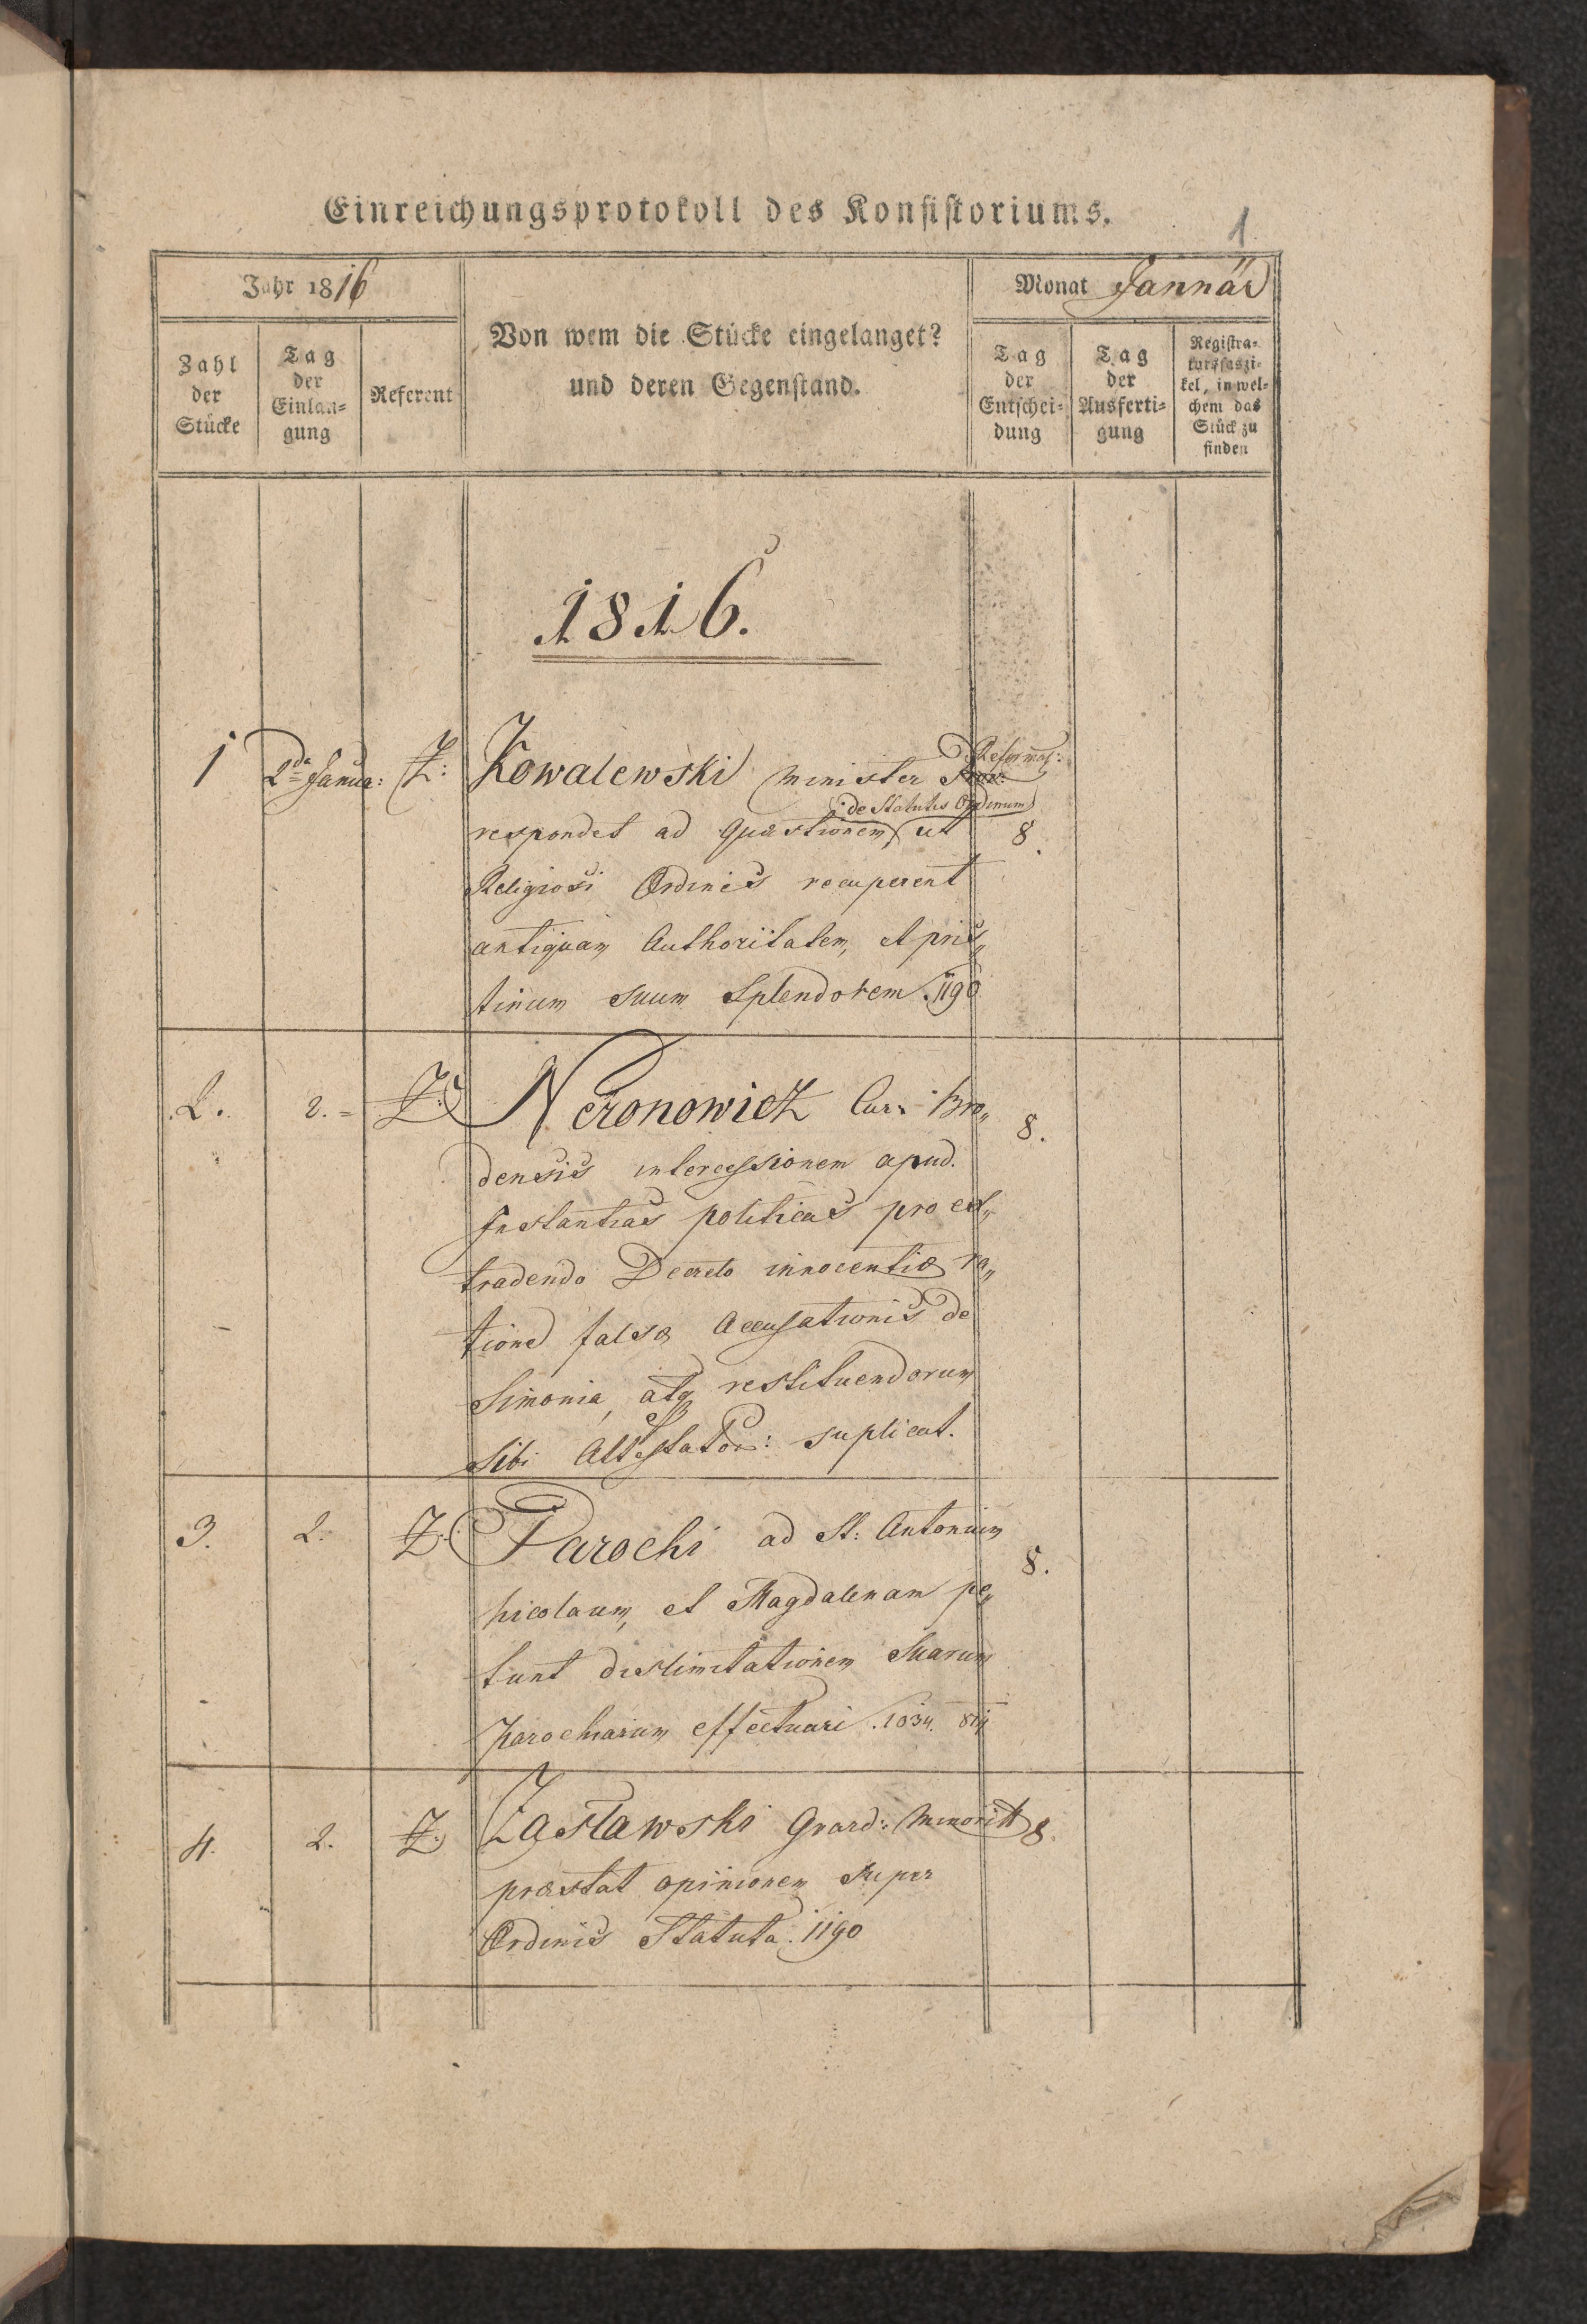 Einreichungsprotokoll des Konsistoriums.
1
Jahr 1816
Von wem die Stücke eingelanget?
und deren Gegenstand.
Monat Jannär
Zahl
der
Stücke
Tag
der
Einlan=
gung
Referent
Tag
der
Entschei=
dung
Tag
der
Ausferti=
gung
Registra=
tursfaszi=
kel, in wel=
chem das
Stück zu
finden
1816.
1 2da Janua: Z: Kowalewski Minister Reformat:
(: de Statutis Ordinum)
respondet ad Quæstionem, ut 8.
Religiosi Ordines recuperent
antiquam Authoritatem, et pris„
tinum suum Splendorem. 1190
2. 2. = Z: Neronowicz Cur: Bro„ 8.
densis intercessionem apud.
Instantias politicas pro ex„
tradendo Decreto innocentiæ ra„
tione falsæ Accusationis de
Simonia, atq restituendorum
sibi Attestator: suplicat.
3. 2. Z: Parochi ad St: Antonium 8.
Nicolaum, et Magdalenam pe„
tunt dislimitationem Suarum
Parochiarum effectuari. 1034.
4. 2. Z. Zasławski Gvard: Minorit 8.
præstat opinionem super
Ordinis Statuta. 1190